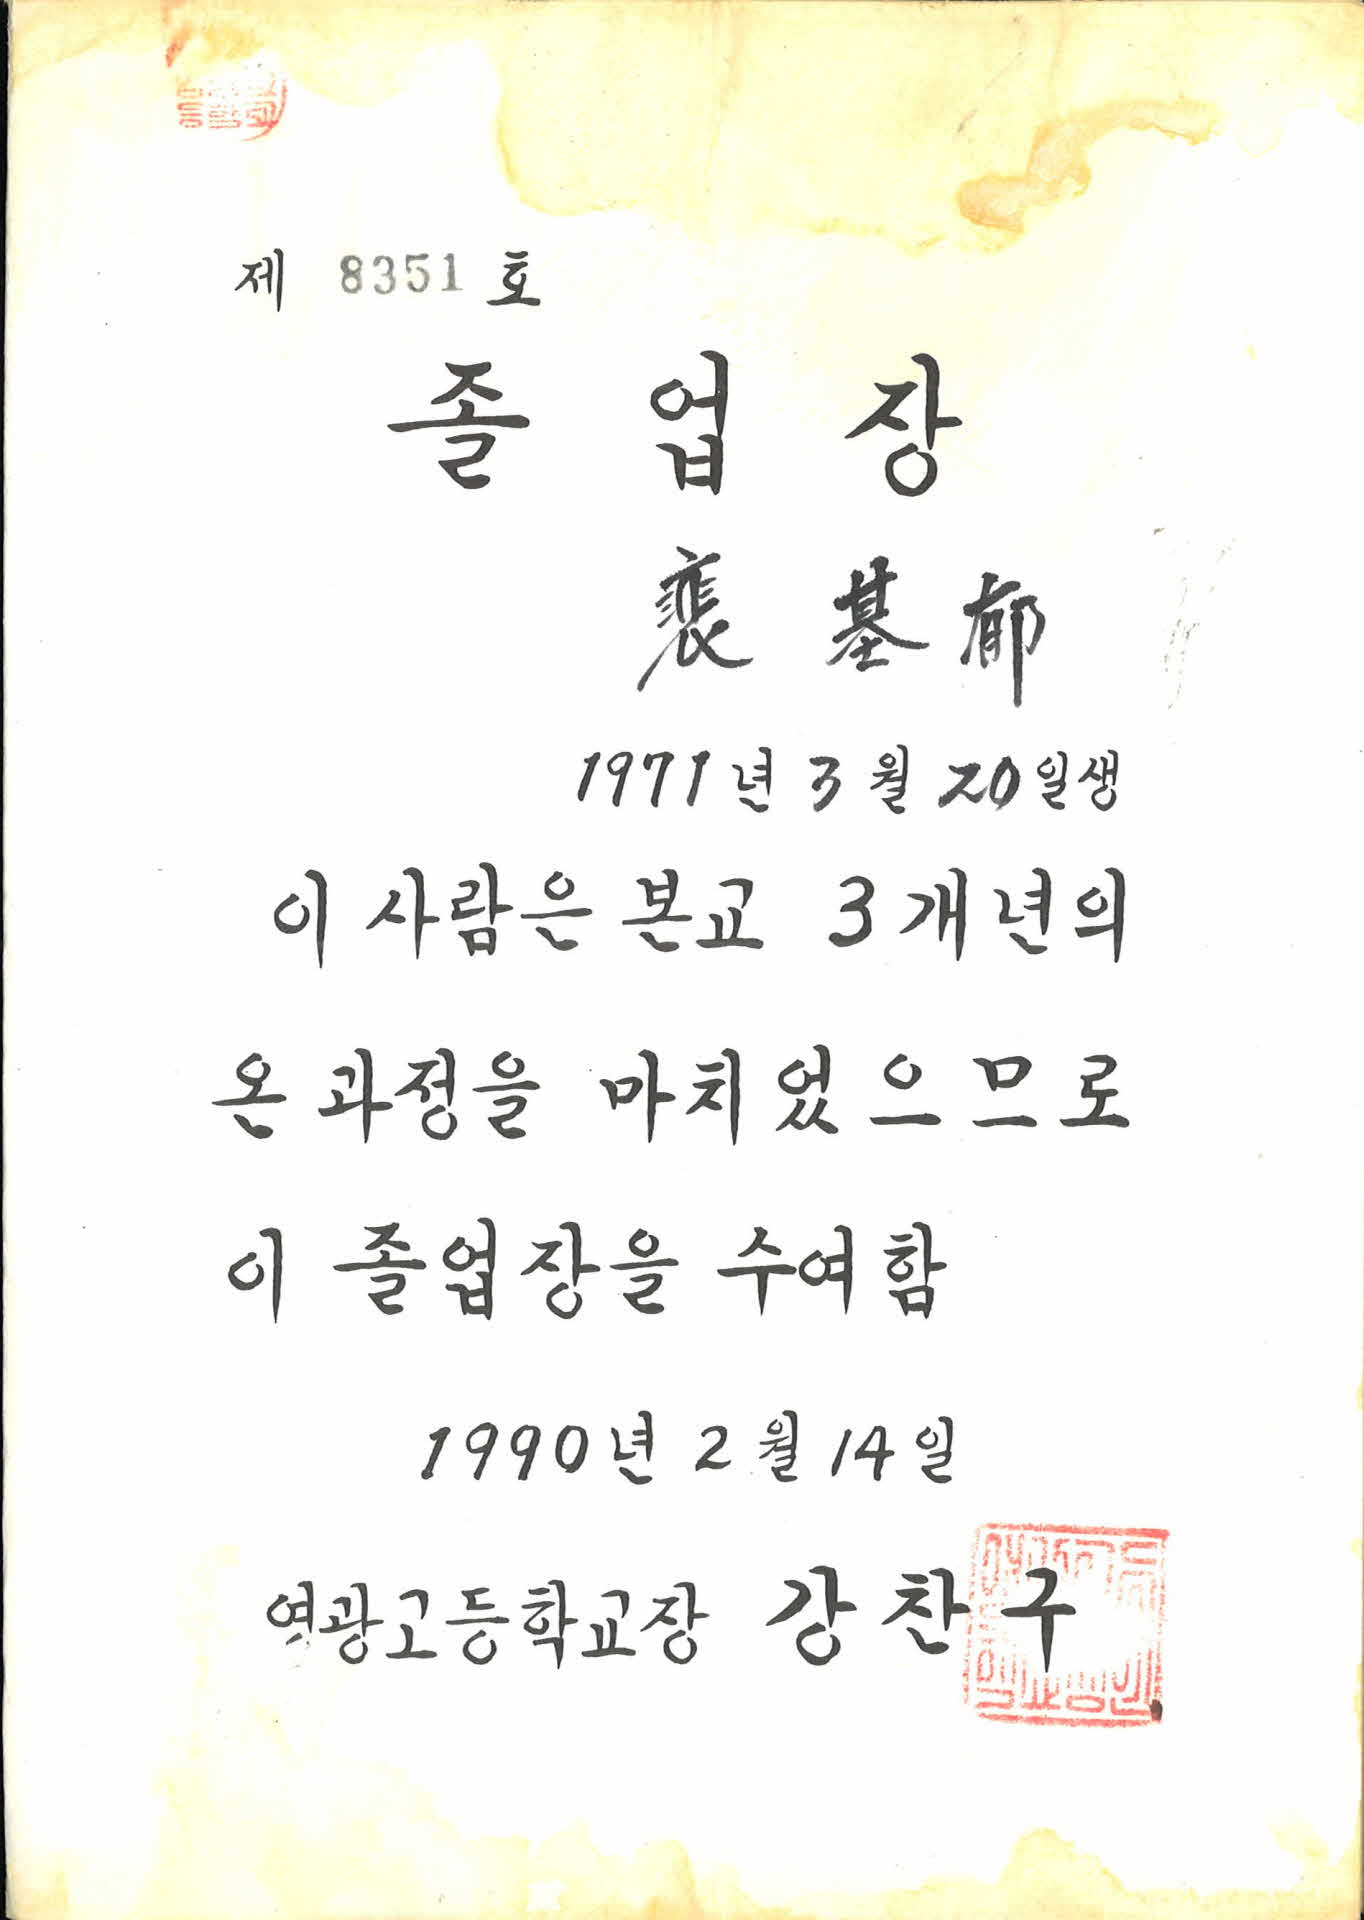 제 8351 호
졸업장
裵基郁
1971년 3월 20일생
이 사람은 본교 3개년의
온 과정을 마치었으므로
이 졸업장을 수여함
1990년 2월 14일
영광고등학교장 강찬구